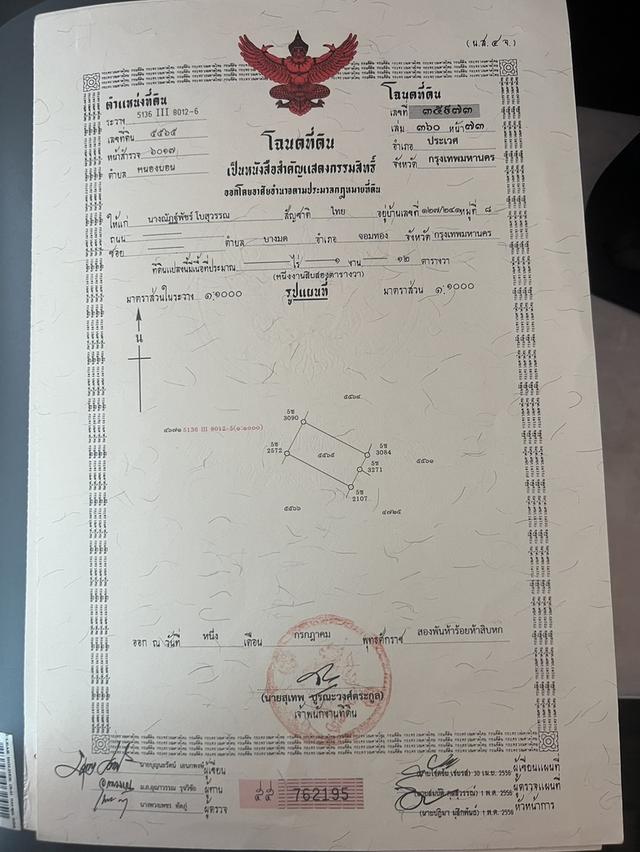 (น.ส. ๔ จ.)
ตำแหน่งที่ดิน
ระวาง 5136 III 8012-6
เลขที่ดิน ๕๕๖๕
หน้าสำรวจ ๖๐๑๗
ตำบล หนองบอน
โฉนดที่ดิน
เลขที่ ๓๕๙๗๓
เล่ม ๓๖๐ หน้า ๗๓
อำเภอ ประเวศ
จังหวัด กรุงเทพมหานคร
โฉนดที่ดิน
เป็นหนังสือสำคัญแสดงกรรมสิทธิ์
ออกโดยอาศัยอำนาจตามประมวลกฎหมายที่ดิน
ให้แก่ นางณัฎฐ์พัชร์ โบสุวรรณ สัญชาติ ไทย อยู่บ้านเลขที่ ๑๒๗/๒๔๑ หมู่ที่ ๘
ถนน ตำบล บางมด อำเภอ จอมทอง จังหวัด กรุงเทพมหานคร
ซอย
ที่ดินแปลงนี้มีเนื้อที่ประมาณ ไร่ ๑ งาน ๑๒ ตารางวา
(หนึ่งงานสิบสองตารางวา)
มาตราส่วนในระวาง ๑:๑๐๐๐ รูปแผนที่ มาตราส่วน ๑:๑๐๐๐
น
๕๕๖๔
5ช
3090
๔๖๗๑ 5136 III 8012-5(๑:๑๐๐๐)
5ช
2572
๕๕๖๕
5ช
3084
5ช
3271
๕๕๖๑
5ช
2107
๕๕๖๖
๔๗๒๕
ออก ณ วันที่ หนึ่ง เดือน กรกฎาคม พุทธศักราช สองพันห้าร้อยห้าสิบหก
(นายสุเทพ บูรณะวงศ์ตระกูล)
เจ้าพนักงานที่ดิน
ผู้เขียน
ผู้ทาน
นางพวงเพชร ผู้ตรวจ
762195
30 เม.ย. 2556 ผู้เขียนแผนที่
1 พ.ค. 2556 ผู้ตรวจแผนที่
1 พ.ค. 2556 หัวหน้าการ